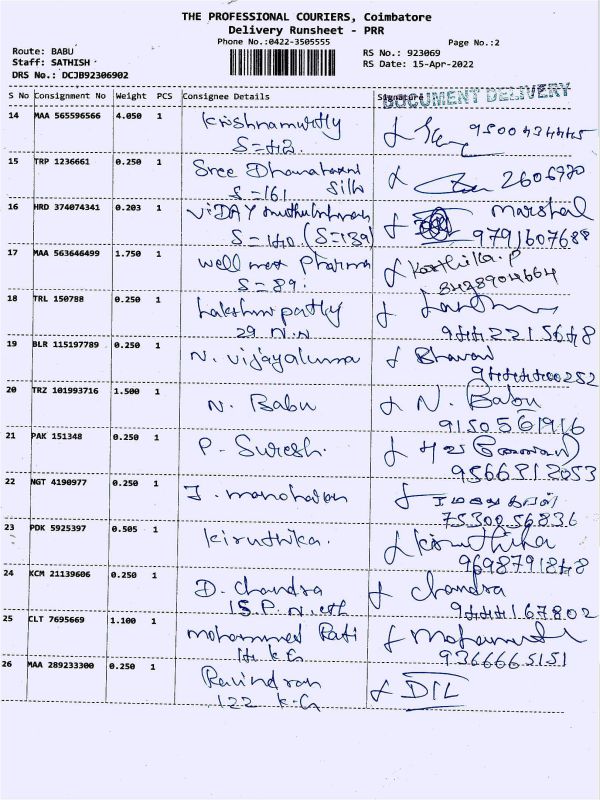 THE PROFESSIONAL COURIERS, Coimbatore
Delivery Runsheet - PRR
Phone No.:0422-3505555
Page No.:2
Route: BABU
RS No.: 923069
Staff: SATHISH
RS Date: 15-Apr-2022
DRS No.: DCJB92306902
S No Consignment No Weight PCS Consignee Details Signature DOCUMENT DELIVERY
14 MAA 565596566 4.050 1 Krishnamurthy
S=
15 TRP 1236661 0.250 1 Sree
S=161 Silk 2606720
16 HRD 374074341 0.203 1 Marshal
S=140 (S=139) 9791607688
17 MAA 563646499 1.750 1 Well Pharma Karthika.P
S=89.
18 TRL 150788 0.250 1
29 N.N 9442215648
19 BLR 115197789 0.250 1 N. Bhavan
9444400252
20 TRZ 101993716 1.500 1 N. Babu N. Babu
9150561916
21 PAK 151348 0.250 1 P. Suresh.
9566312053
22 NGT 4190977 0.250 1 J. manoharan
7530056836
23 PDK 5925397 0.505 1 Kiruthika. Kiruthika
9698791848
24 KCM 21139606 0.250 1 D. Chandra Chandra
9444167802
25 CLT 7695669 1.100 1 mohammed Rafi
14 K.G 9366665151
26 MAA 289233300 0.250 1 Ravindran
122 K.G